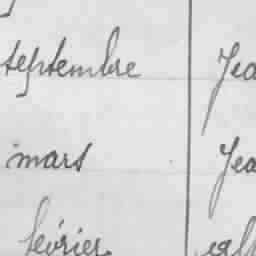 septembre Jea
mars Jea
février